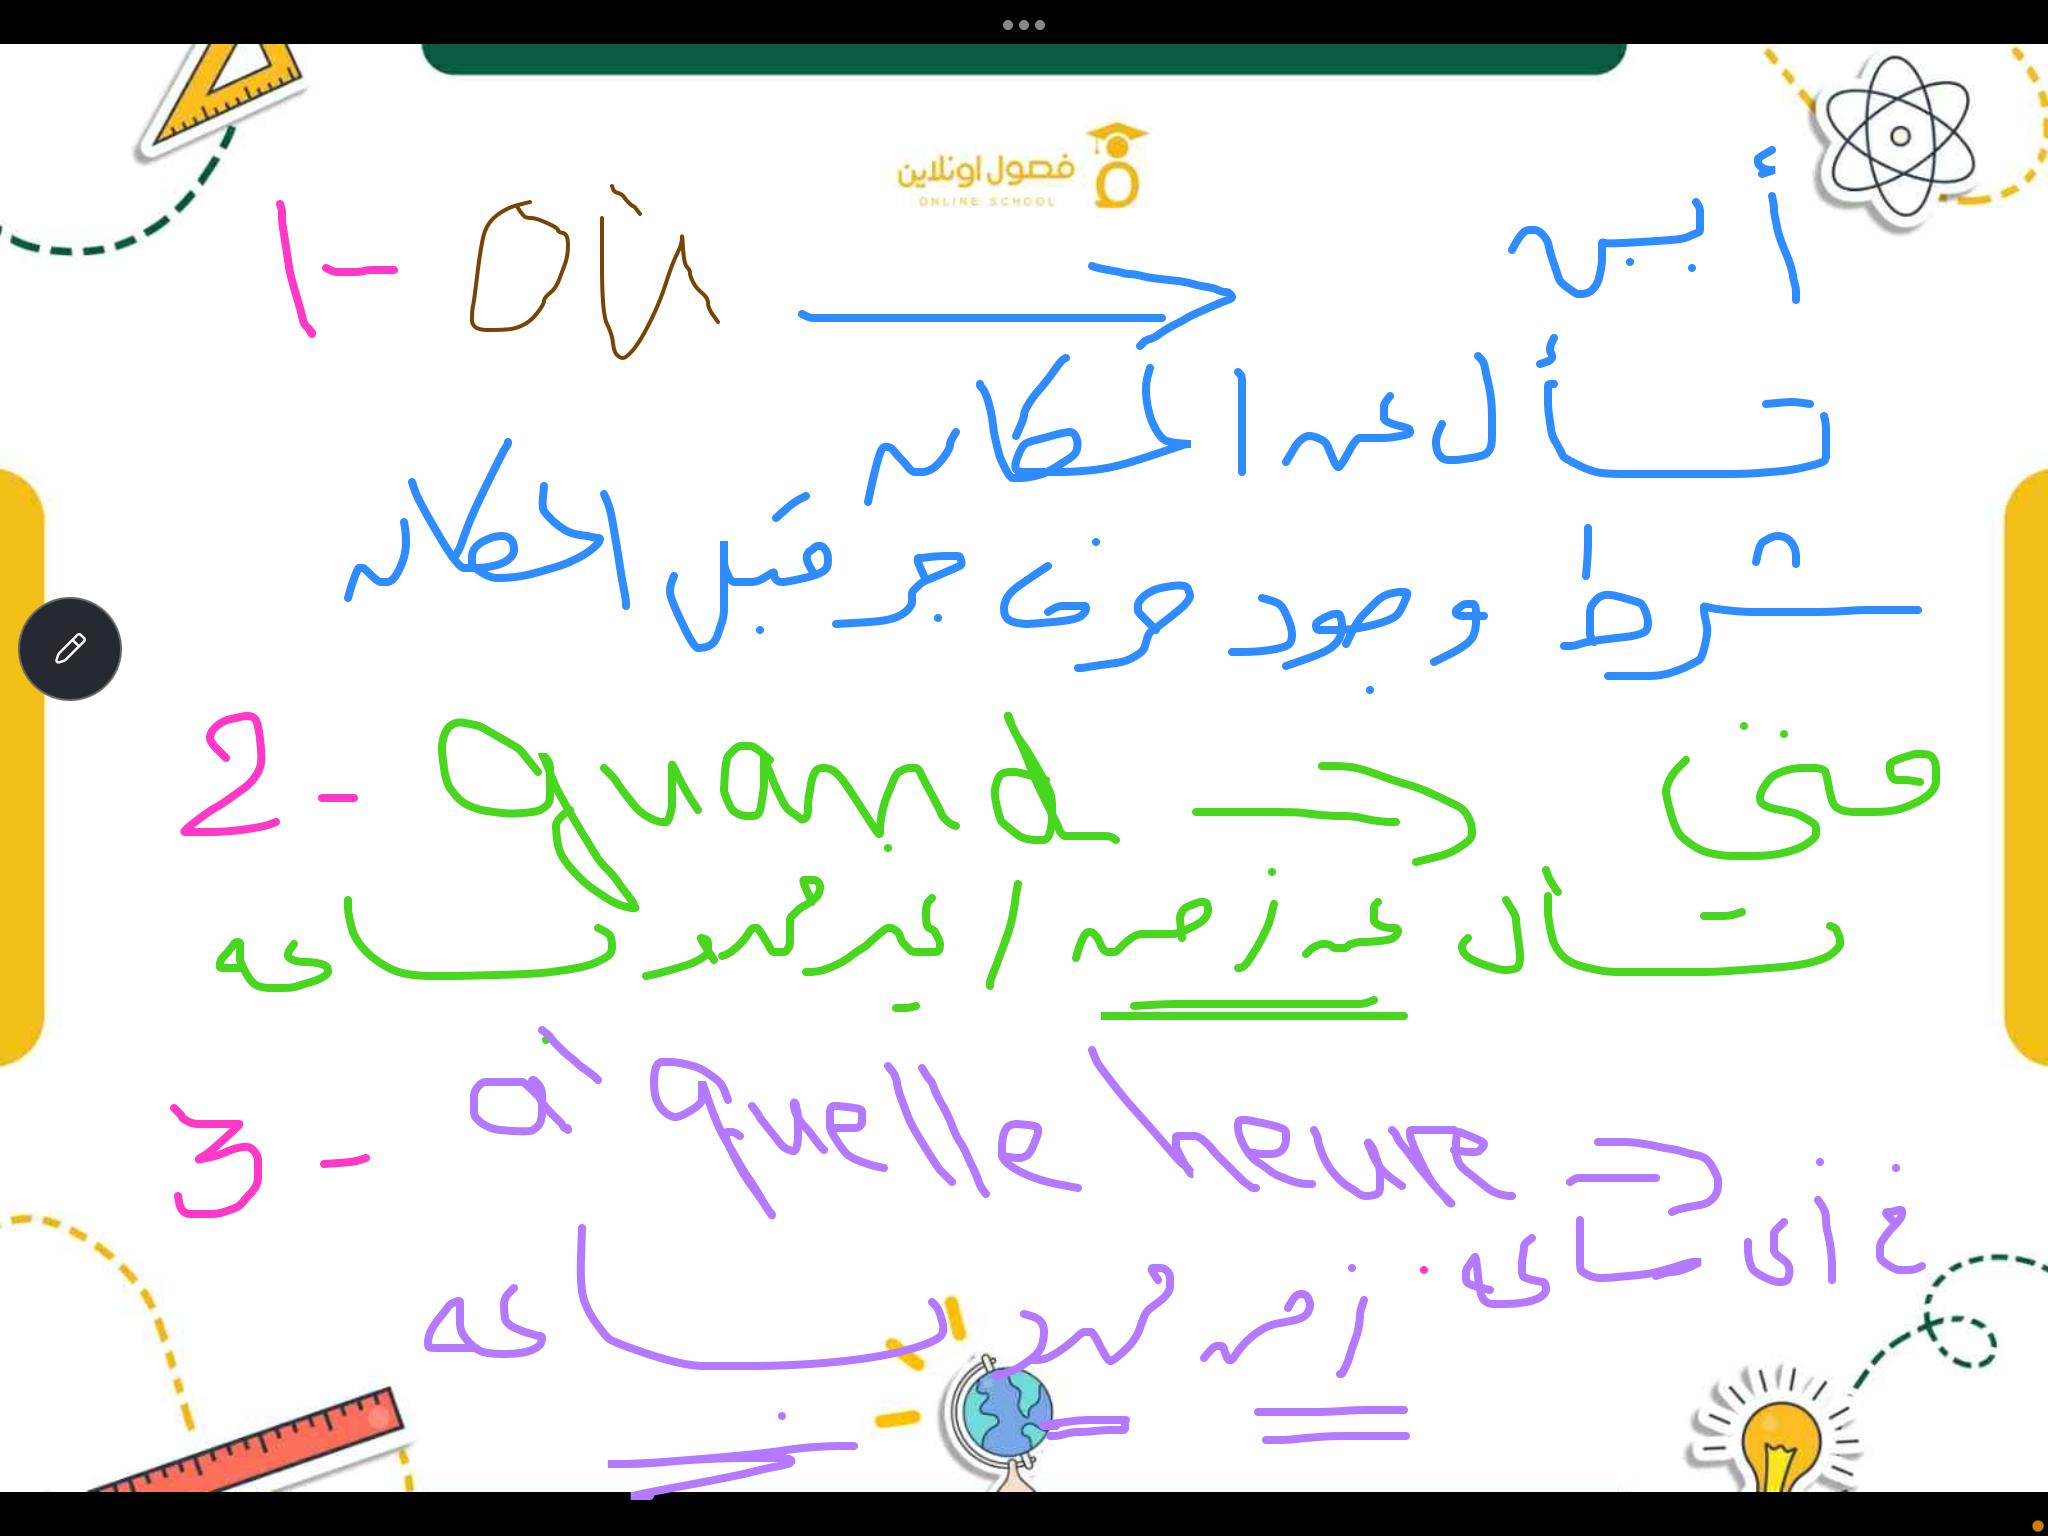 فصول اونلاين
ONLINE SCHOOL
1- Où → أين
تسأل عن المكان
شرط وجود حرف جر قبل المكان
2- quand → متى
تسأل عن زمن / غير محدد بساعه
3- à quelle heure → في أي ساعه
زمن محدد بساعه